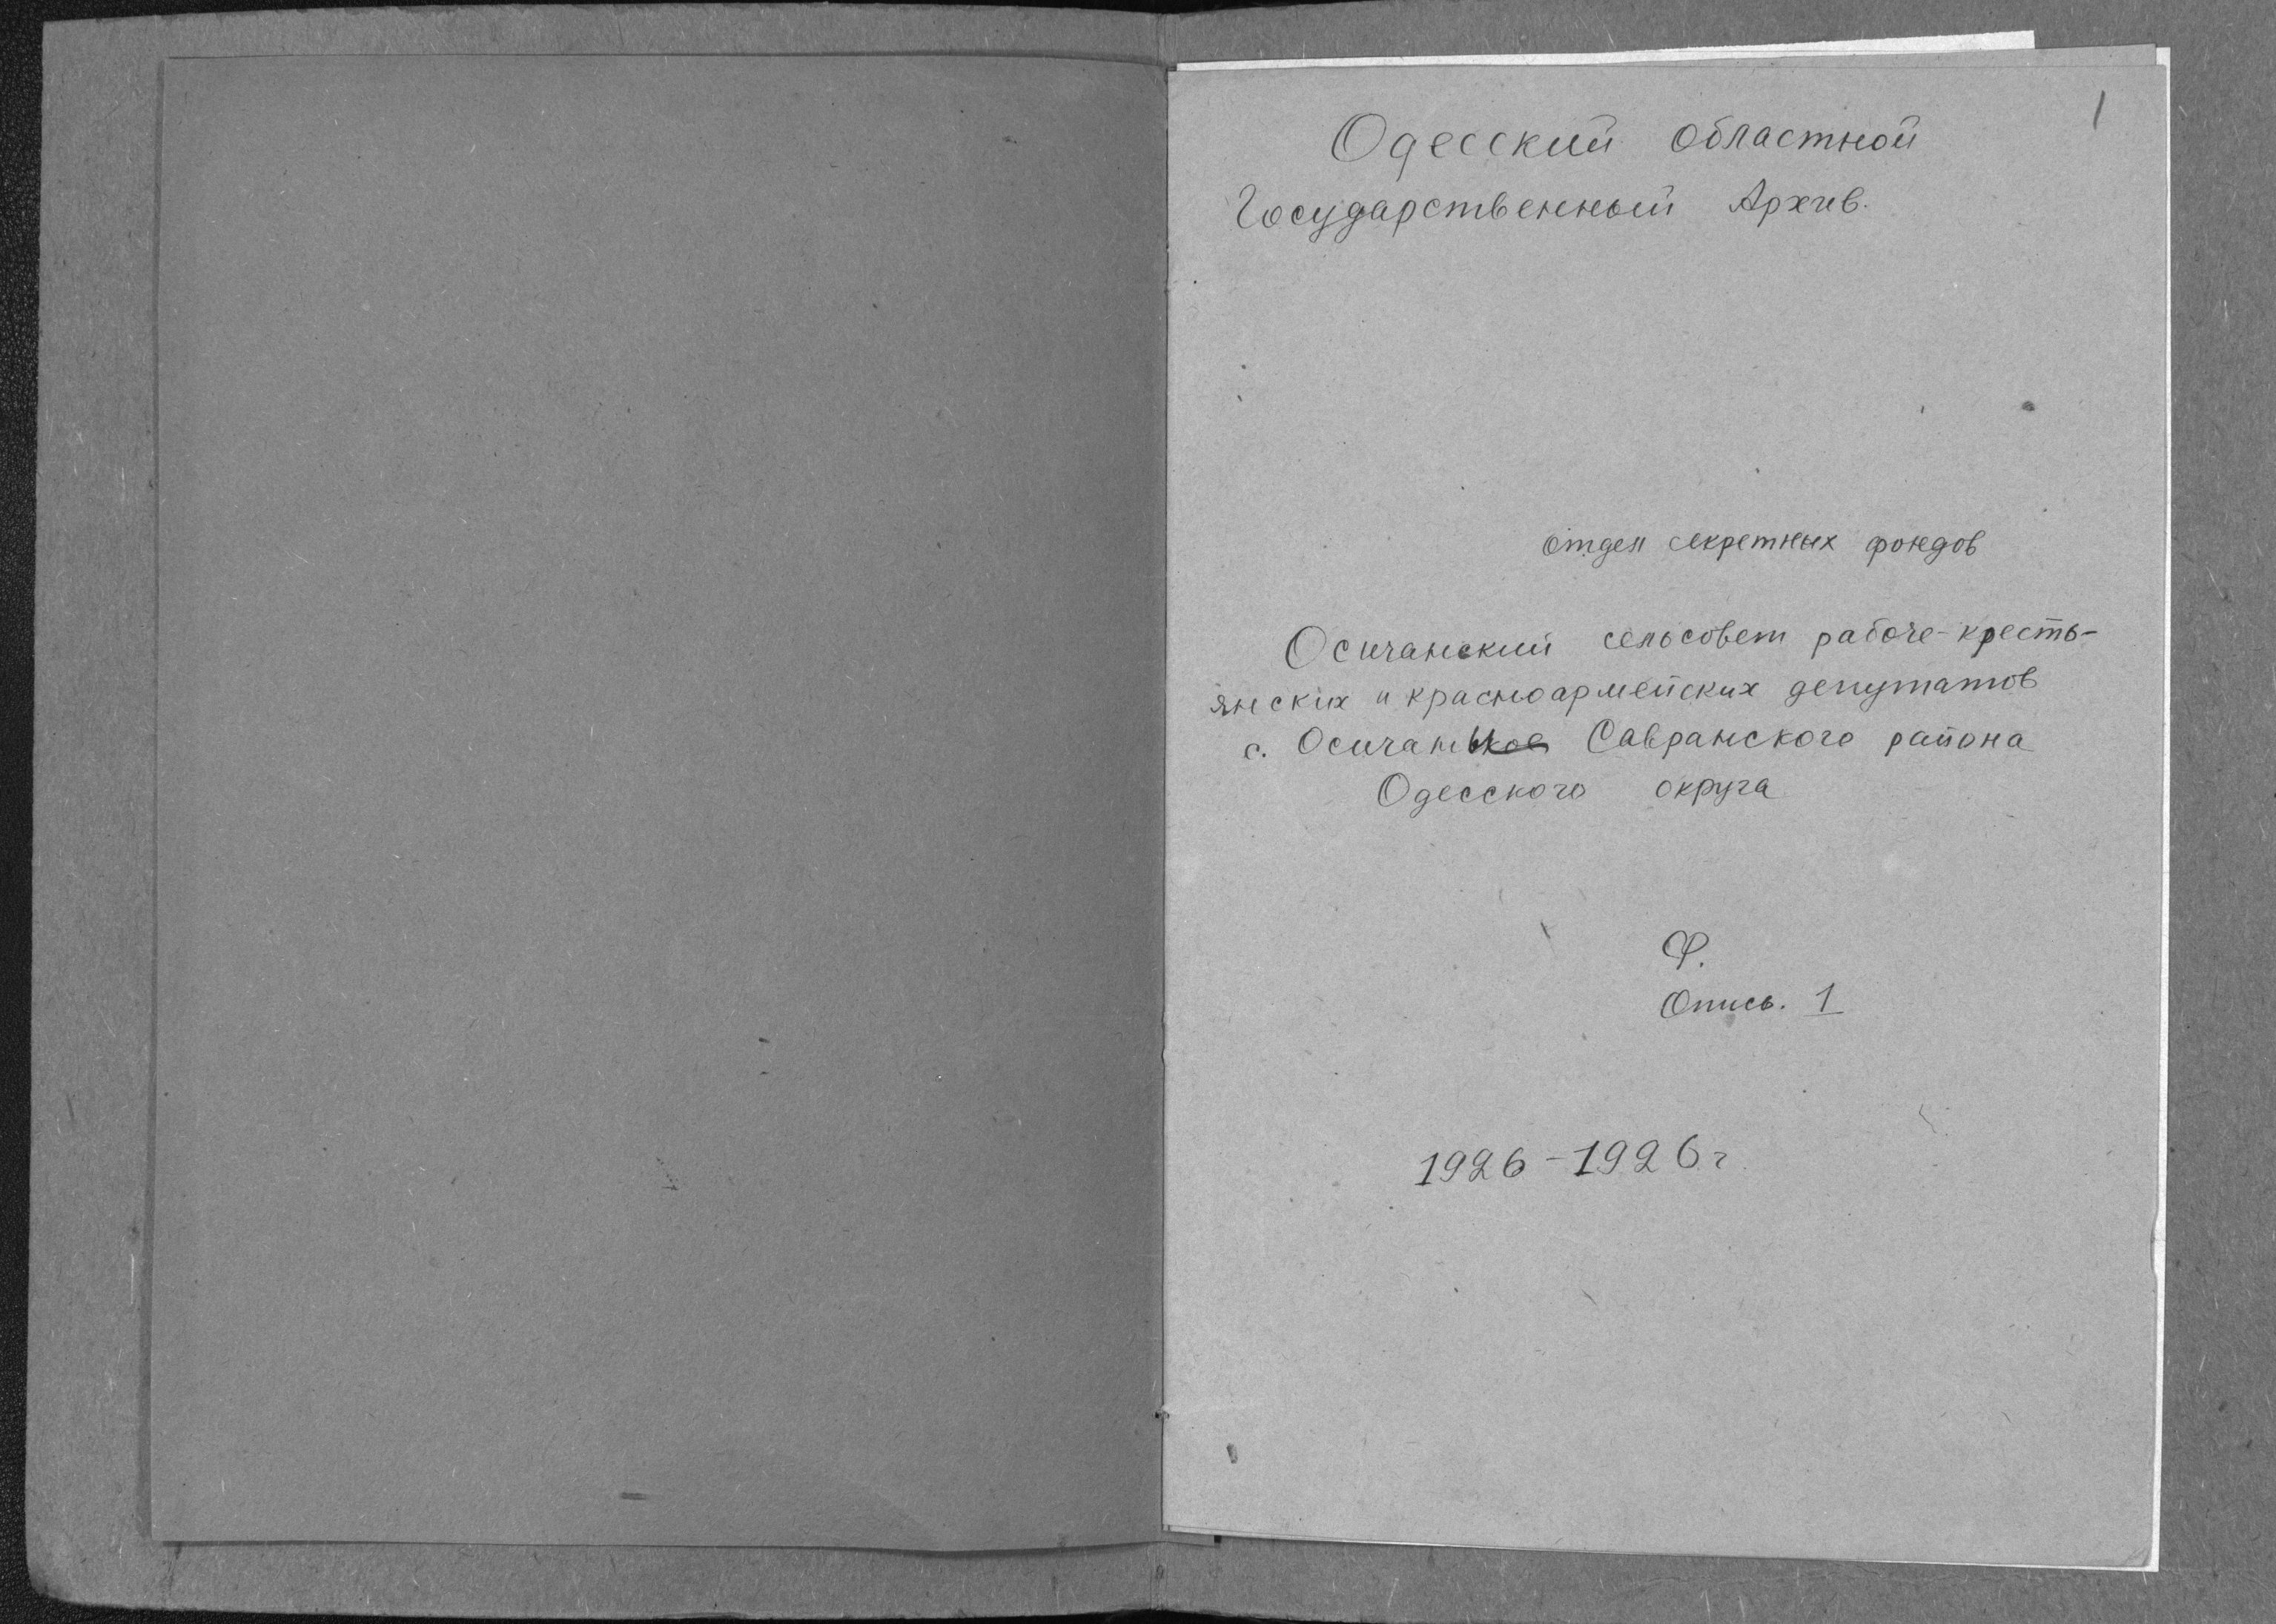 1
Одесский областной
Государственный Архив.
отдел секретных фондов
Осичанский сельсовет рабоче-кресть-
янских и красноармейских депутатов
с. Осичаны Савранского района
Одесского округа
Ф.
Опись. 1
1926-1926 г